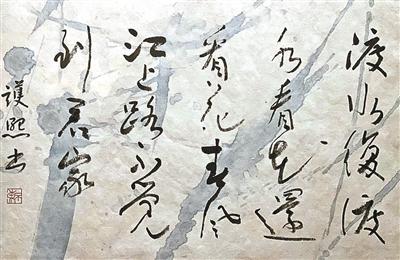 渡水復渡
水看花還
看花春風
江上路不覚
到君家
護熙书